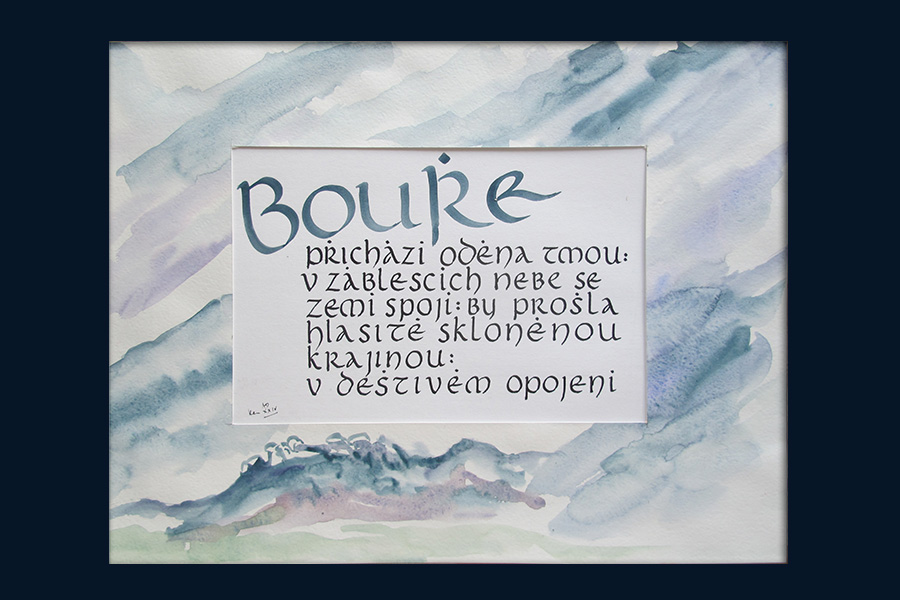 Bouře
přichází oděna tmou:
v záblescích nebe se
zemi spojí: by prošla
hlasitě skloněnou
krajinou:
v deštivém opojení